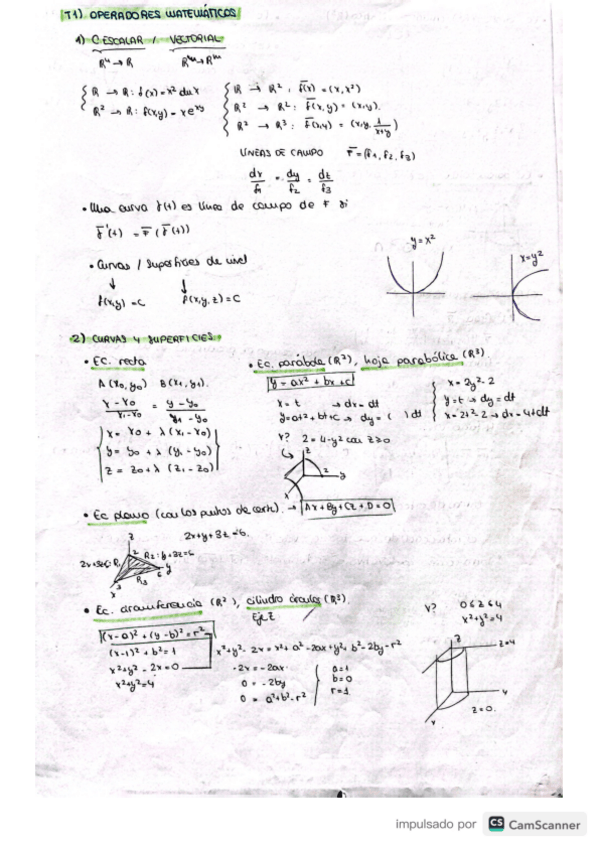 T1) OPERADORES MATEMÁTICOS
1) C ESCALAR / VECTORIAL
Rⁿ → R Rⁿ → Rᵐ
R → R: f(x) = x²
R² → R: f(x,y) = x e^xy
R → R²: f̄(x) = (x, x²)
R² → R²: f̄(x,y) = (x,y).
R² → R³: f̄(x,y) = (x,y, 1/x+y)
LÍNEAS DE CAMPO F̄ = (f₁, f₂, f₃)
dx/f₁ = dy/f₂ = dz/f₃
• Una curva γ(t) es línea de campo de F si
γ̄'(t) = F̄(γ̄(t))
y = x²
x = y²
• Curvas / superficies de nivel
f(x,y) = C f(x,y,z) = C
2) CURVAS Y SUPERFICIES.
• Ec. recta
A(x₀, y₀) B(x₁, y₁).
x - x₀/x₁ - x₀ = y - y₀/y₁ - y₀
x = x₀ + λ(x₁ - x₀)
y = y₀ + λ(y₁ - y₀)
z = z₀ + λ(z₁ - z₀)
• Ec. parábola (R²), hoja parabólica (R³)
y = ax² + bx + c
x = t → dx = dt
y = at² + bt + c → dy = ( ) dt
x = 2y² - 2
y = t → dy = dt
x = 2t² - 2 → dx = 4t dt
V? z = 4 - y² con z ≥ 0
z
2
y
x
• Ec plano (con los puntos de corte). → Ax + By + Cz + D = 0
2x + y + 3z = 6.
z
2
R₂: y + 3z = 6
6
y
R₃
3
x
• Ec. circunferencia (R²), cilindro circular (R³).
Eje z
(x - a)² + (y - b)² = r²
(x-1)² + b² = 1
x² + y² - 2x = 0
x² + y² = 4
x² + y² - 2x = x² + a² - 2ax + y² + b² - 2by - r²
-2x = -2ax
0 = -2by
0 = a² + b² - r²
a = 1
b = 0
r = 1
V? 0 ≤ z ≤ 4
x² + y² = 4
z
z = 4
y
z = 0.
impulsado por CS CamScanner